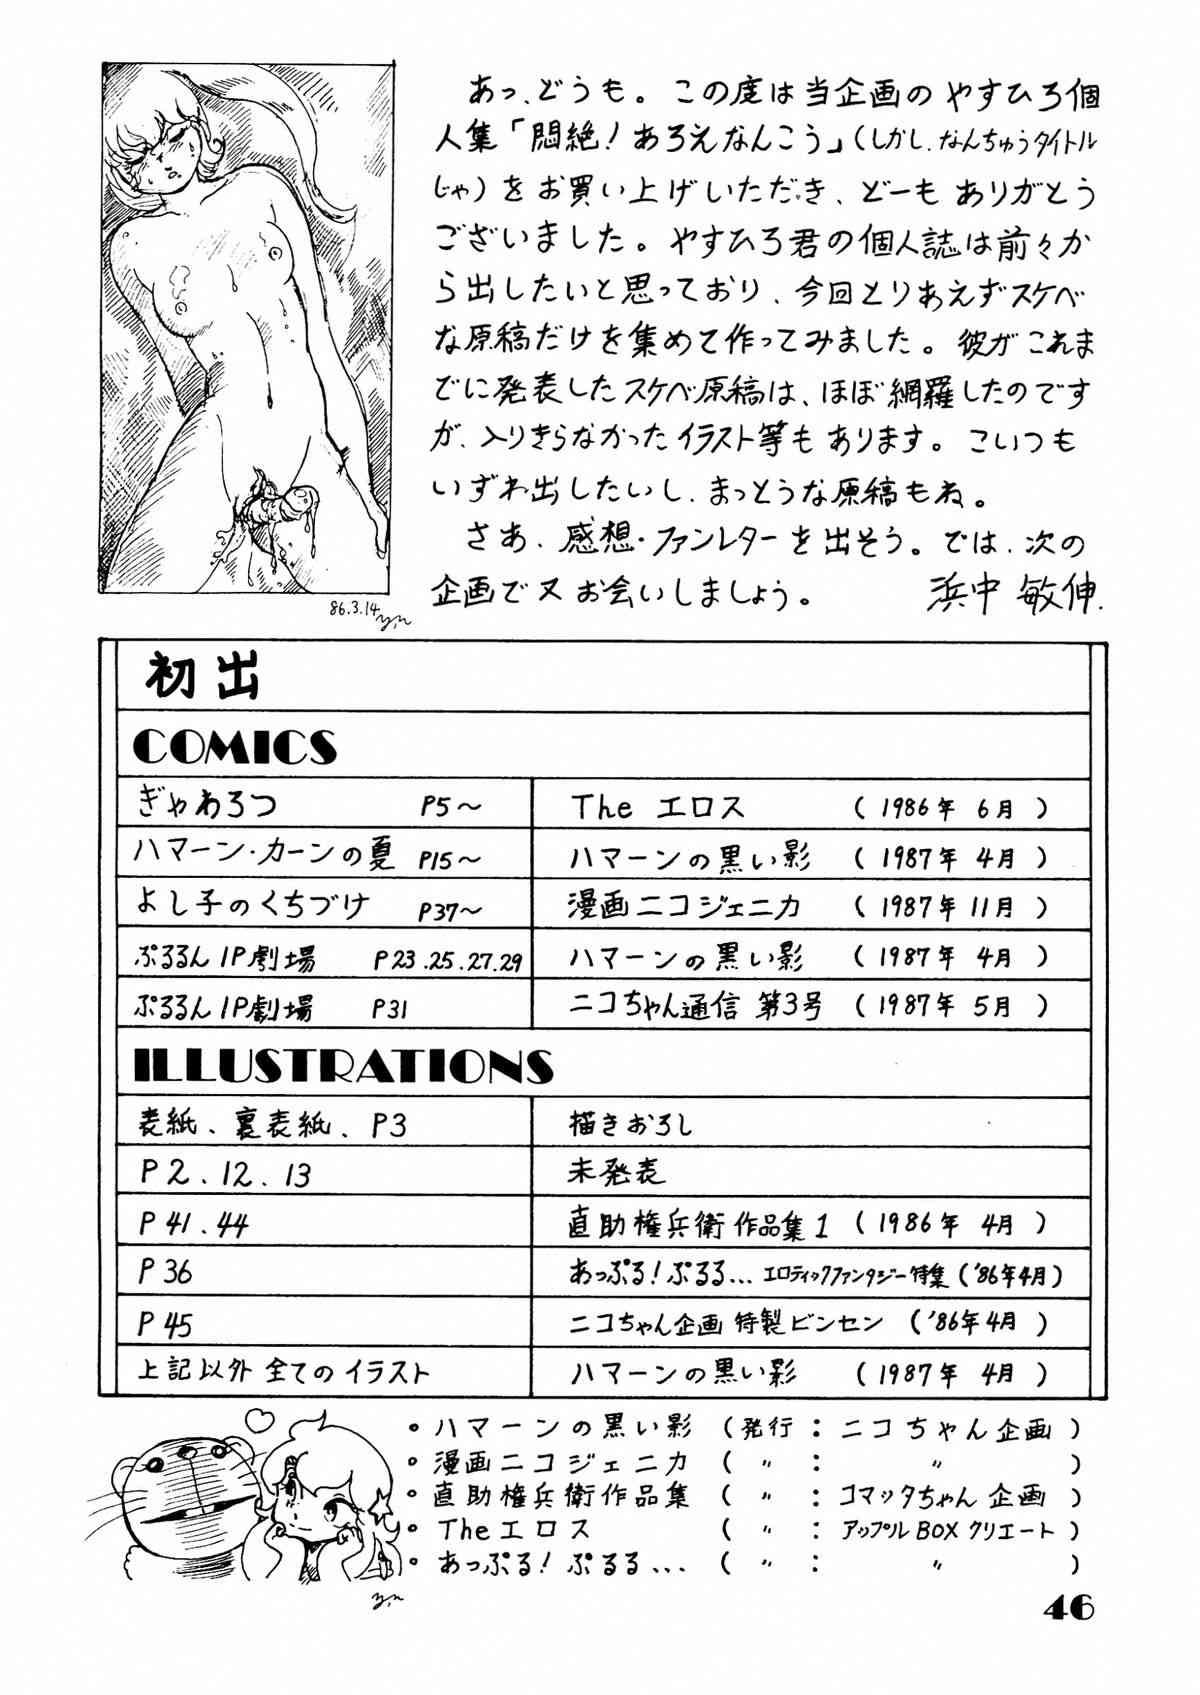 あっ、どうも。この度は当企画のやすひろ個
人集「悶絶！あろえなんこう」（しかし、なんちゅうタイトル
じゃ）をお買い上げいただき、どーもありがとう
ございました。やすひろ君の個人誌は前々か
ら出したいと思っており、今回とりあえずスケベ
な原稿だけを集めて作ってみました。彼がこれま
でに発表したスケベ原稿は、ほぼ網羅したのです
が、入りきらなかったイラスト等もあります。こいつも
いずれ出したいし、まっとうな原稿もね。
さあ、感想・ファンレターを出そう。では、次の
企画で又お会いしましょう。 浜中 敏伸.
86.3.14
初出
COMICS
ぎゃわろつ P5～ The エロス (1986年 6月)
ハマーン・カーンの夏 P15～ ハマーンの黒い影 (1987年 4月)
よし子のくちづけ P37～ 漫画ニコジェニカ (1987年 11月)
ぷるるん1P劇場 P23.25.27.29 ハマーンの黒い影 (1987年 4月)
ぷるるん1P劇場 P31 ニコちゃん通信 第3号 (1987年 5月)
ILLUSTRATIONS
表紙、裏表紙、P3 描きおろし
P2.12.13 未発表
P41.44 直助権兵衛 作品集1 (1986年 4月)
P36 あっぷる！ぷるる… エロティックファンタジー特集 ('86年4月)
P45 ニコちゃん企画 特製ビンセン ('86年4月)
上記以外 全てのイラスト ハマーンの黒い影 (1987年 4月)
・ハマーンの黒い影 (発行：ニコちゃん企画)
・漫画ニコジェニカ (〃：〃)
・直助権兵衛作品集 (〃：コマッタちゃん企画)
・Theエロス (〃：アップルBOXクリエート)
・あっぷる！ぷるる… (〃：〃)
46